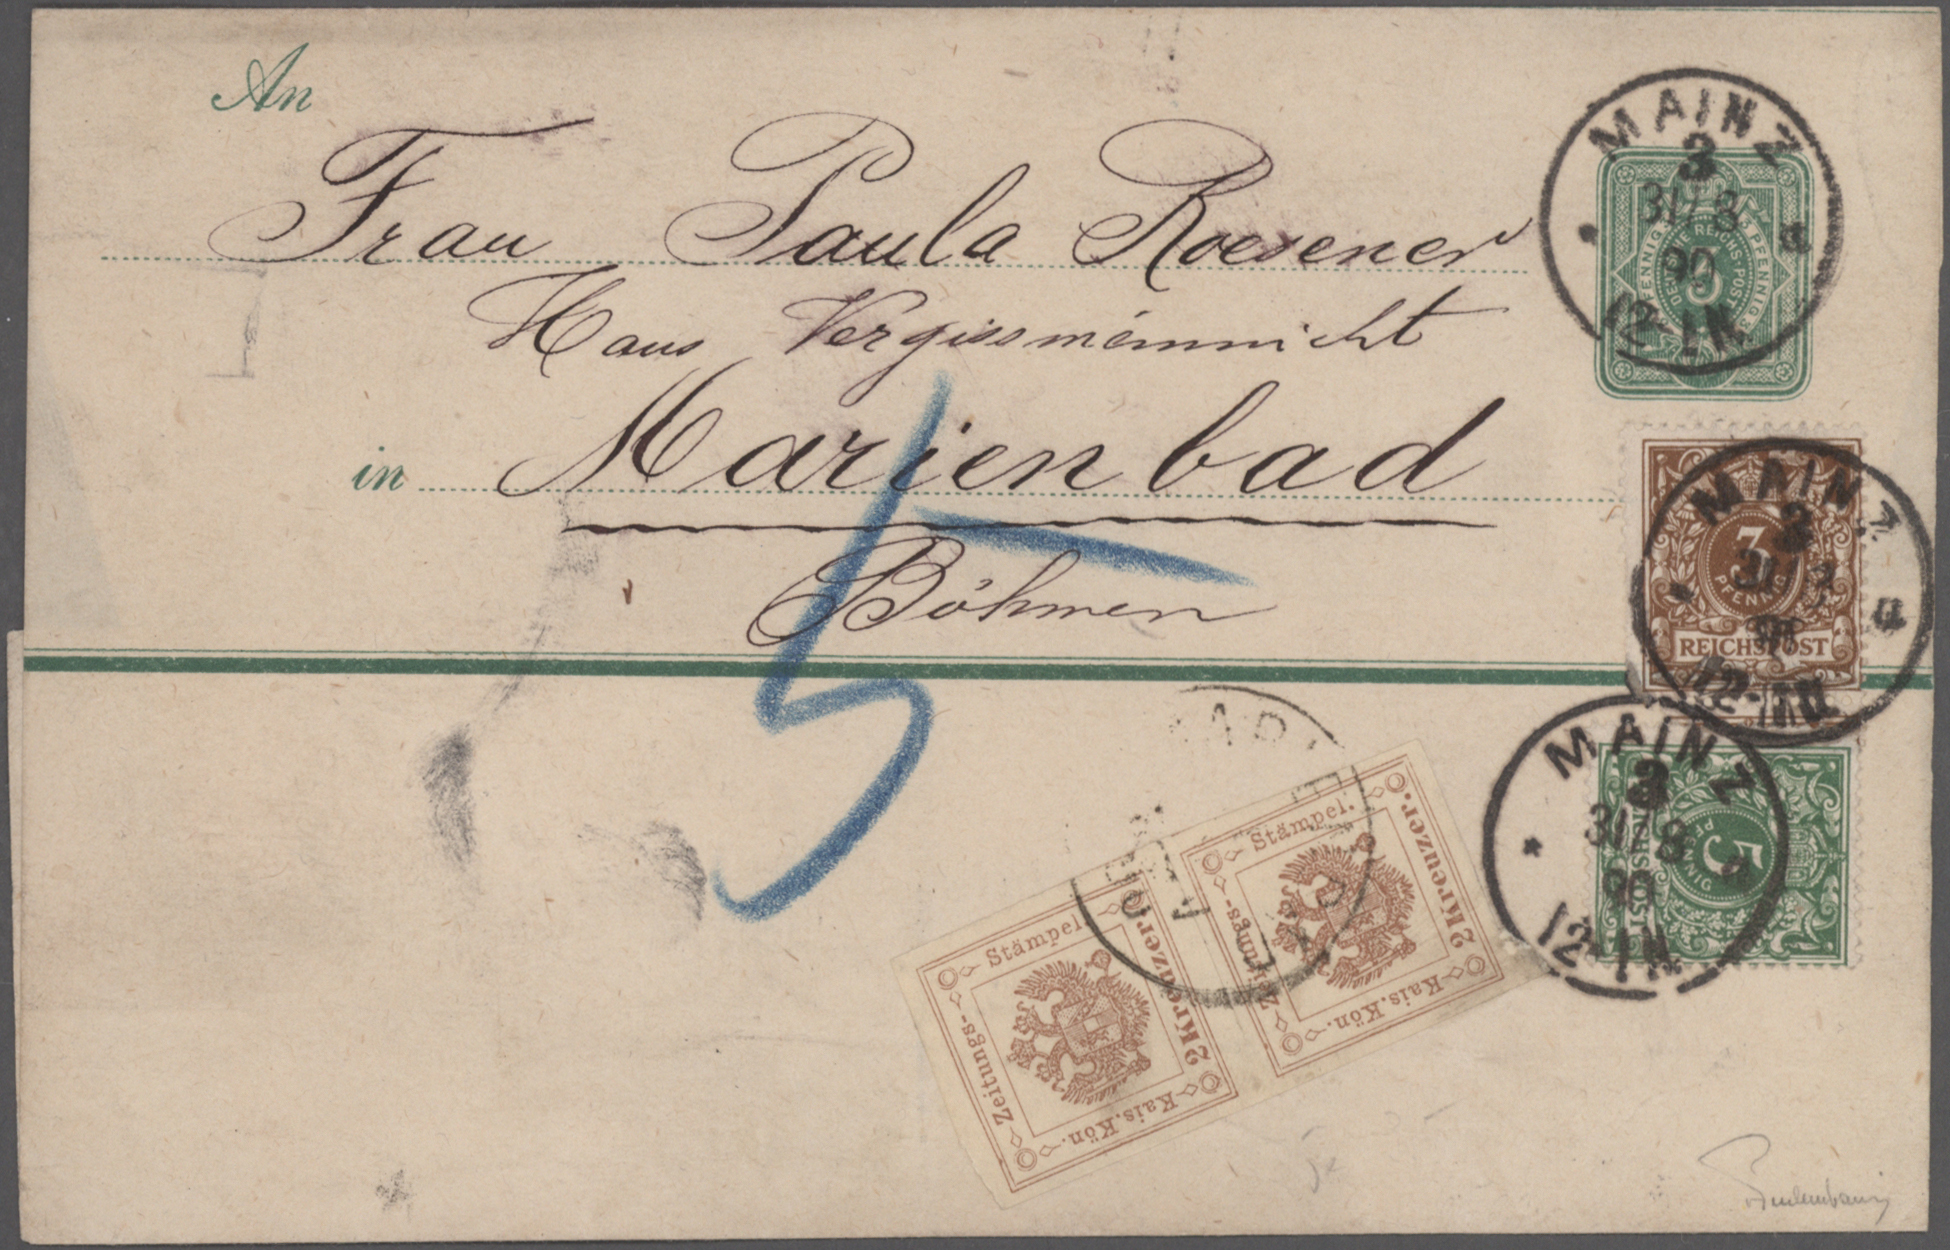 An
Frau Paula Roesener
Haus Vergissmeinnicht
in Marienbad
Böhmen
5
MAINZ
3
31/8
90
12-1N
a
3 PFENNIG 3 PFENNIG
DEUTSCHE REICHS-POST
3
MAINZ
3
31/8
90
12-1N
a
3
PFENNIG
REICHSPOST
MAINZ
3
31/8
90
12-1N
a
5
PFENNIG
REICHSPOST
Stämpel.
2 Kreuzer.
Kais. Kön.
Zeitungs-
Stämpel.
2 Kreuzer.
Kais. Kön.
Zeitungs-